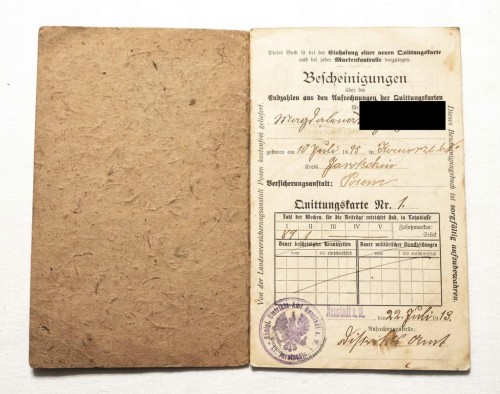 Dieses Buch ist bei der Einholung einer neuen Quittungskarte
und bei jeder Markenkontrolle vorzulegen.
Bescheinigungen
über die
Endzahlen aus den Aufrechnungen der Quittungskarten
für
Magdalena
geboren am 10 Juli 95 in
Kreis Jarotschin
Versicherungsanstalt: Posen
Quittungskarte Nr. 1.
Zahl der Wochen, für die Beiträge entrichtet sind, in Lohnklasse
I II III IV V Zusatzmarken:
Stück
Dauer bescheinigter Krankheiten
Dauer militärischer Dienstleistungen
vom bis einschließlich vom bis einschließlich
den 22. Juli 1913.
Aufrechnungsstelle:
Distrikts Amt
Von der Landesversicherungsanstalt Posen kostenfrei geliefert.
Dieses Bescheinigungsbuch ist sorgfältig aufzubewahren.